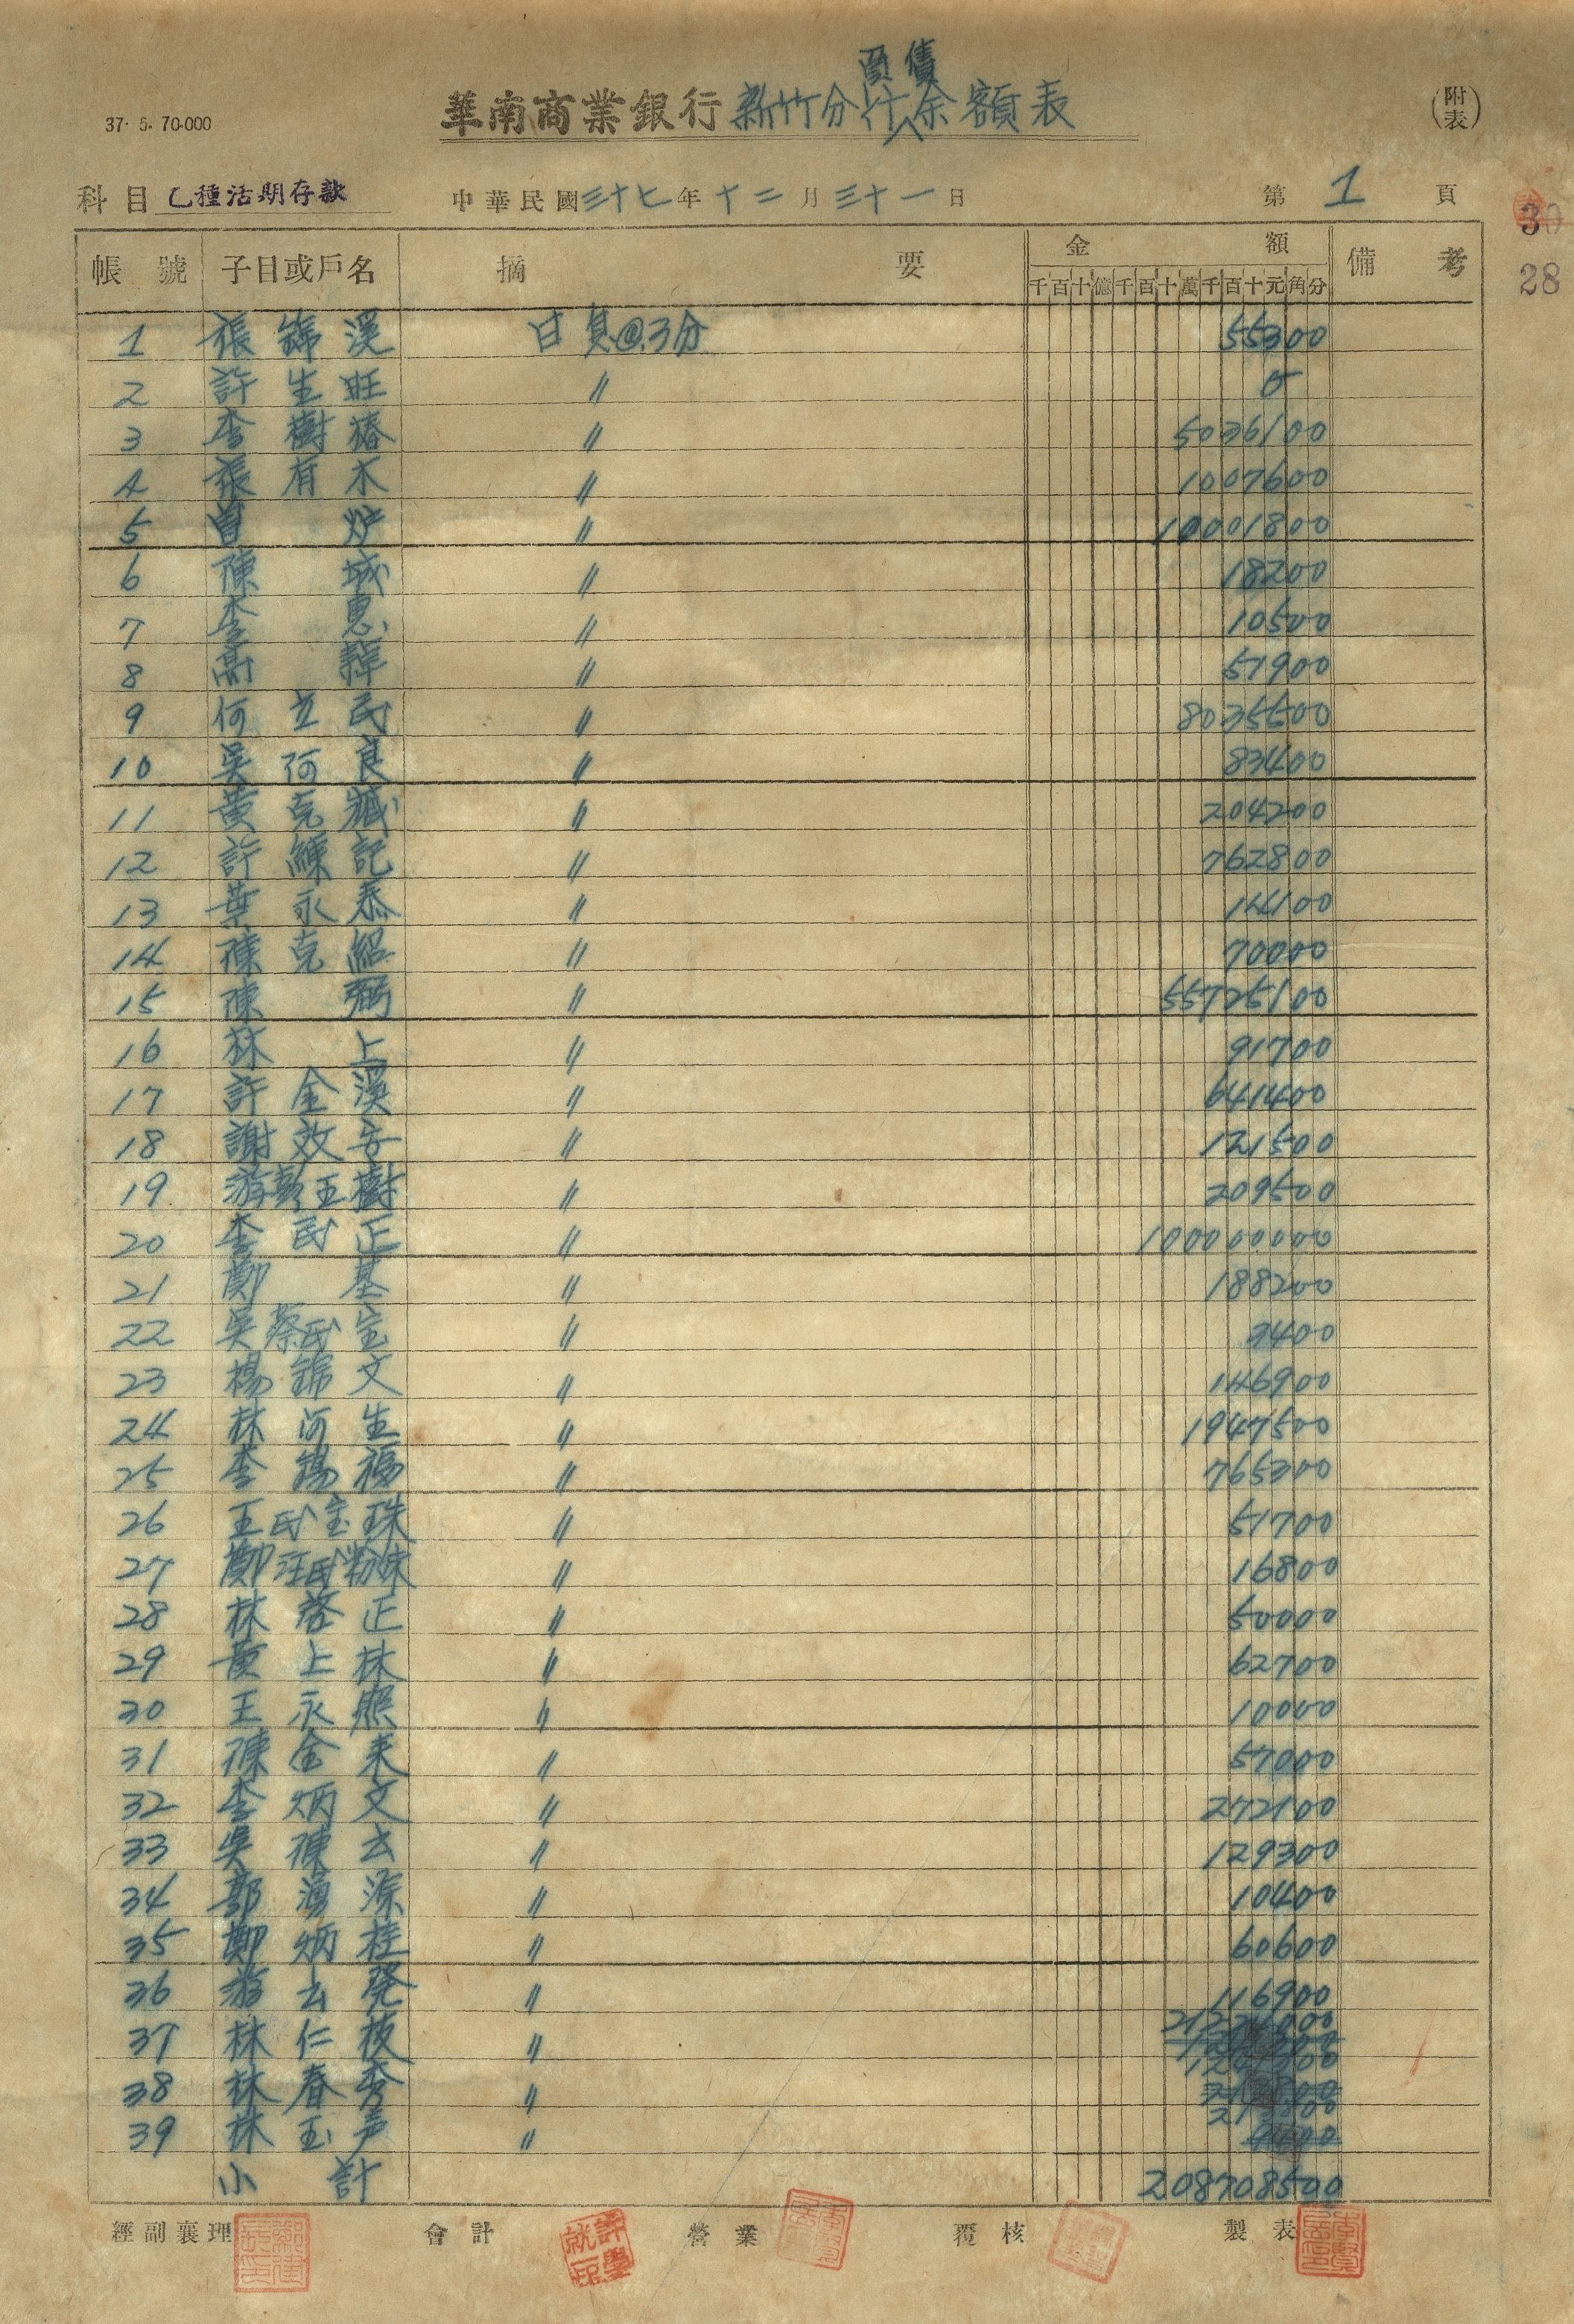 負債
華南商業銀行新竹分行余額表
37. 5. 70.000
(附表)
科目 乙種活期存款 中華民國三十七年十二月三十一日 第1頁
30
28
帳號 子目或戶名 摘要 金額 備考
千百十億千百十萬千百十元角分
1 張錦溪 日息@.3分 55300
2 許生旺 〃 0
3 李樹椿 〃 5036100
4 張有木 〃 1007600
5 曾炉 〃 10001800
6 陳城 〃 18200
7 李惠 〃 10500
8 高 〃 51900
9 何立民 〃 8035500
10 吳阿良 〃 83400
11 黃克 〃 204200
12 許鍊記 〃 762800
13 葉永泰 〃 14100
14 陳克紹 〃 70000
15 陳弼 〃 55725100
16 林上 〃 91700
17 許金溪 〃 641400
18 謝效安 〃 121500
19 游彭玉樹 〃 209500
20 李民正 〃 100000000
21 鄭基 〃 188200
22 吳蔡氏宝 〃 3400
23 楊錦文 〃 146900
24 林阿生 〃 1947500
25 李錫福 〃 765300
26 王氏宝珠 〃 51700
27 鄭汪氏粉妹 〃 16800
28 林啓正 〃 50000
29 黃上林 〃 62700
30 王永照 〃 10000
31 陳金来 〃 57000
32 李炳文 〃 272100
33 吳陳去 〃 129300
34 郭湧源 〃 10400
35 鄭炳桂 〃 60600
36 游去発 〃 116900
37 林仁枝 〃
38 林春秀 〃
39 林玉声 〃
小計 208708500
經副襄理 會計 營業 覆核 製表
許學就印